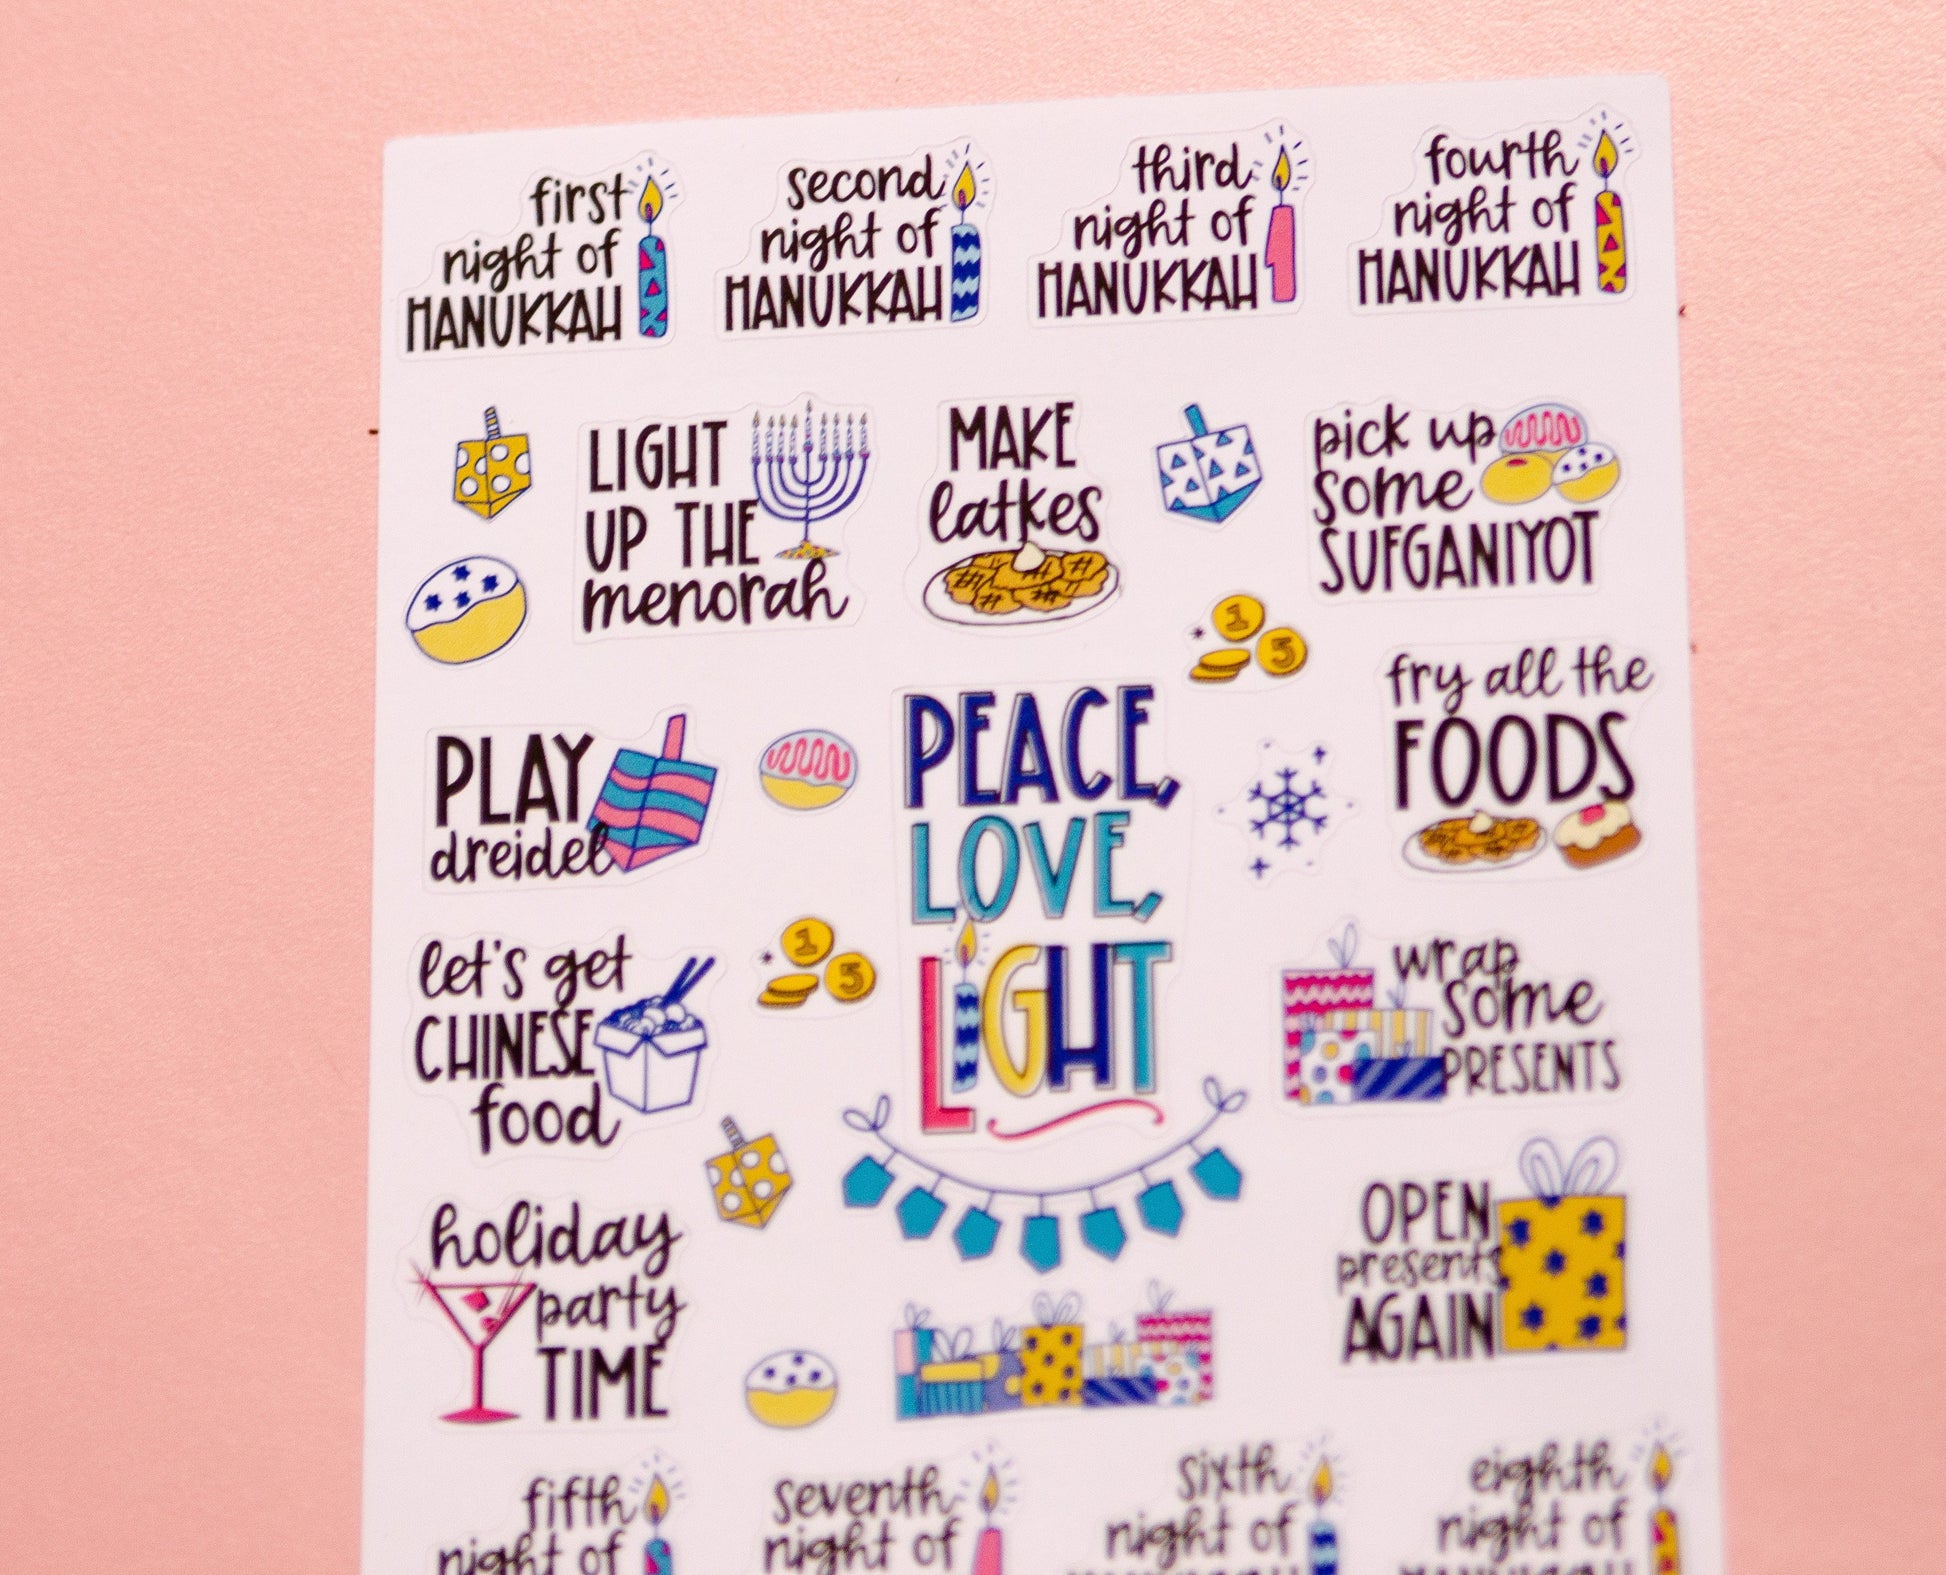 first
night of
HANUKKAH
second
night of
HANUKKAH
third
night of
HANUKKAH
fourth
night of
HANUKKAH
LIGHT
UP THE
menorah
MAKE
latkes
pick up
some
SUFGANIYOT
1
5
PLAY
dreidel
PEACE,
LOVE,
LIGHT
fry all the
FOODS
let's get
CHINESE
food
1
5
wrap
some
PRESENTS
holiday
party
TIME
OPEN
presents
AGAIN
fifth
night of
seventh
night of
sixth
night of
eighth
night of